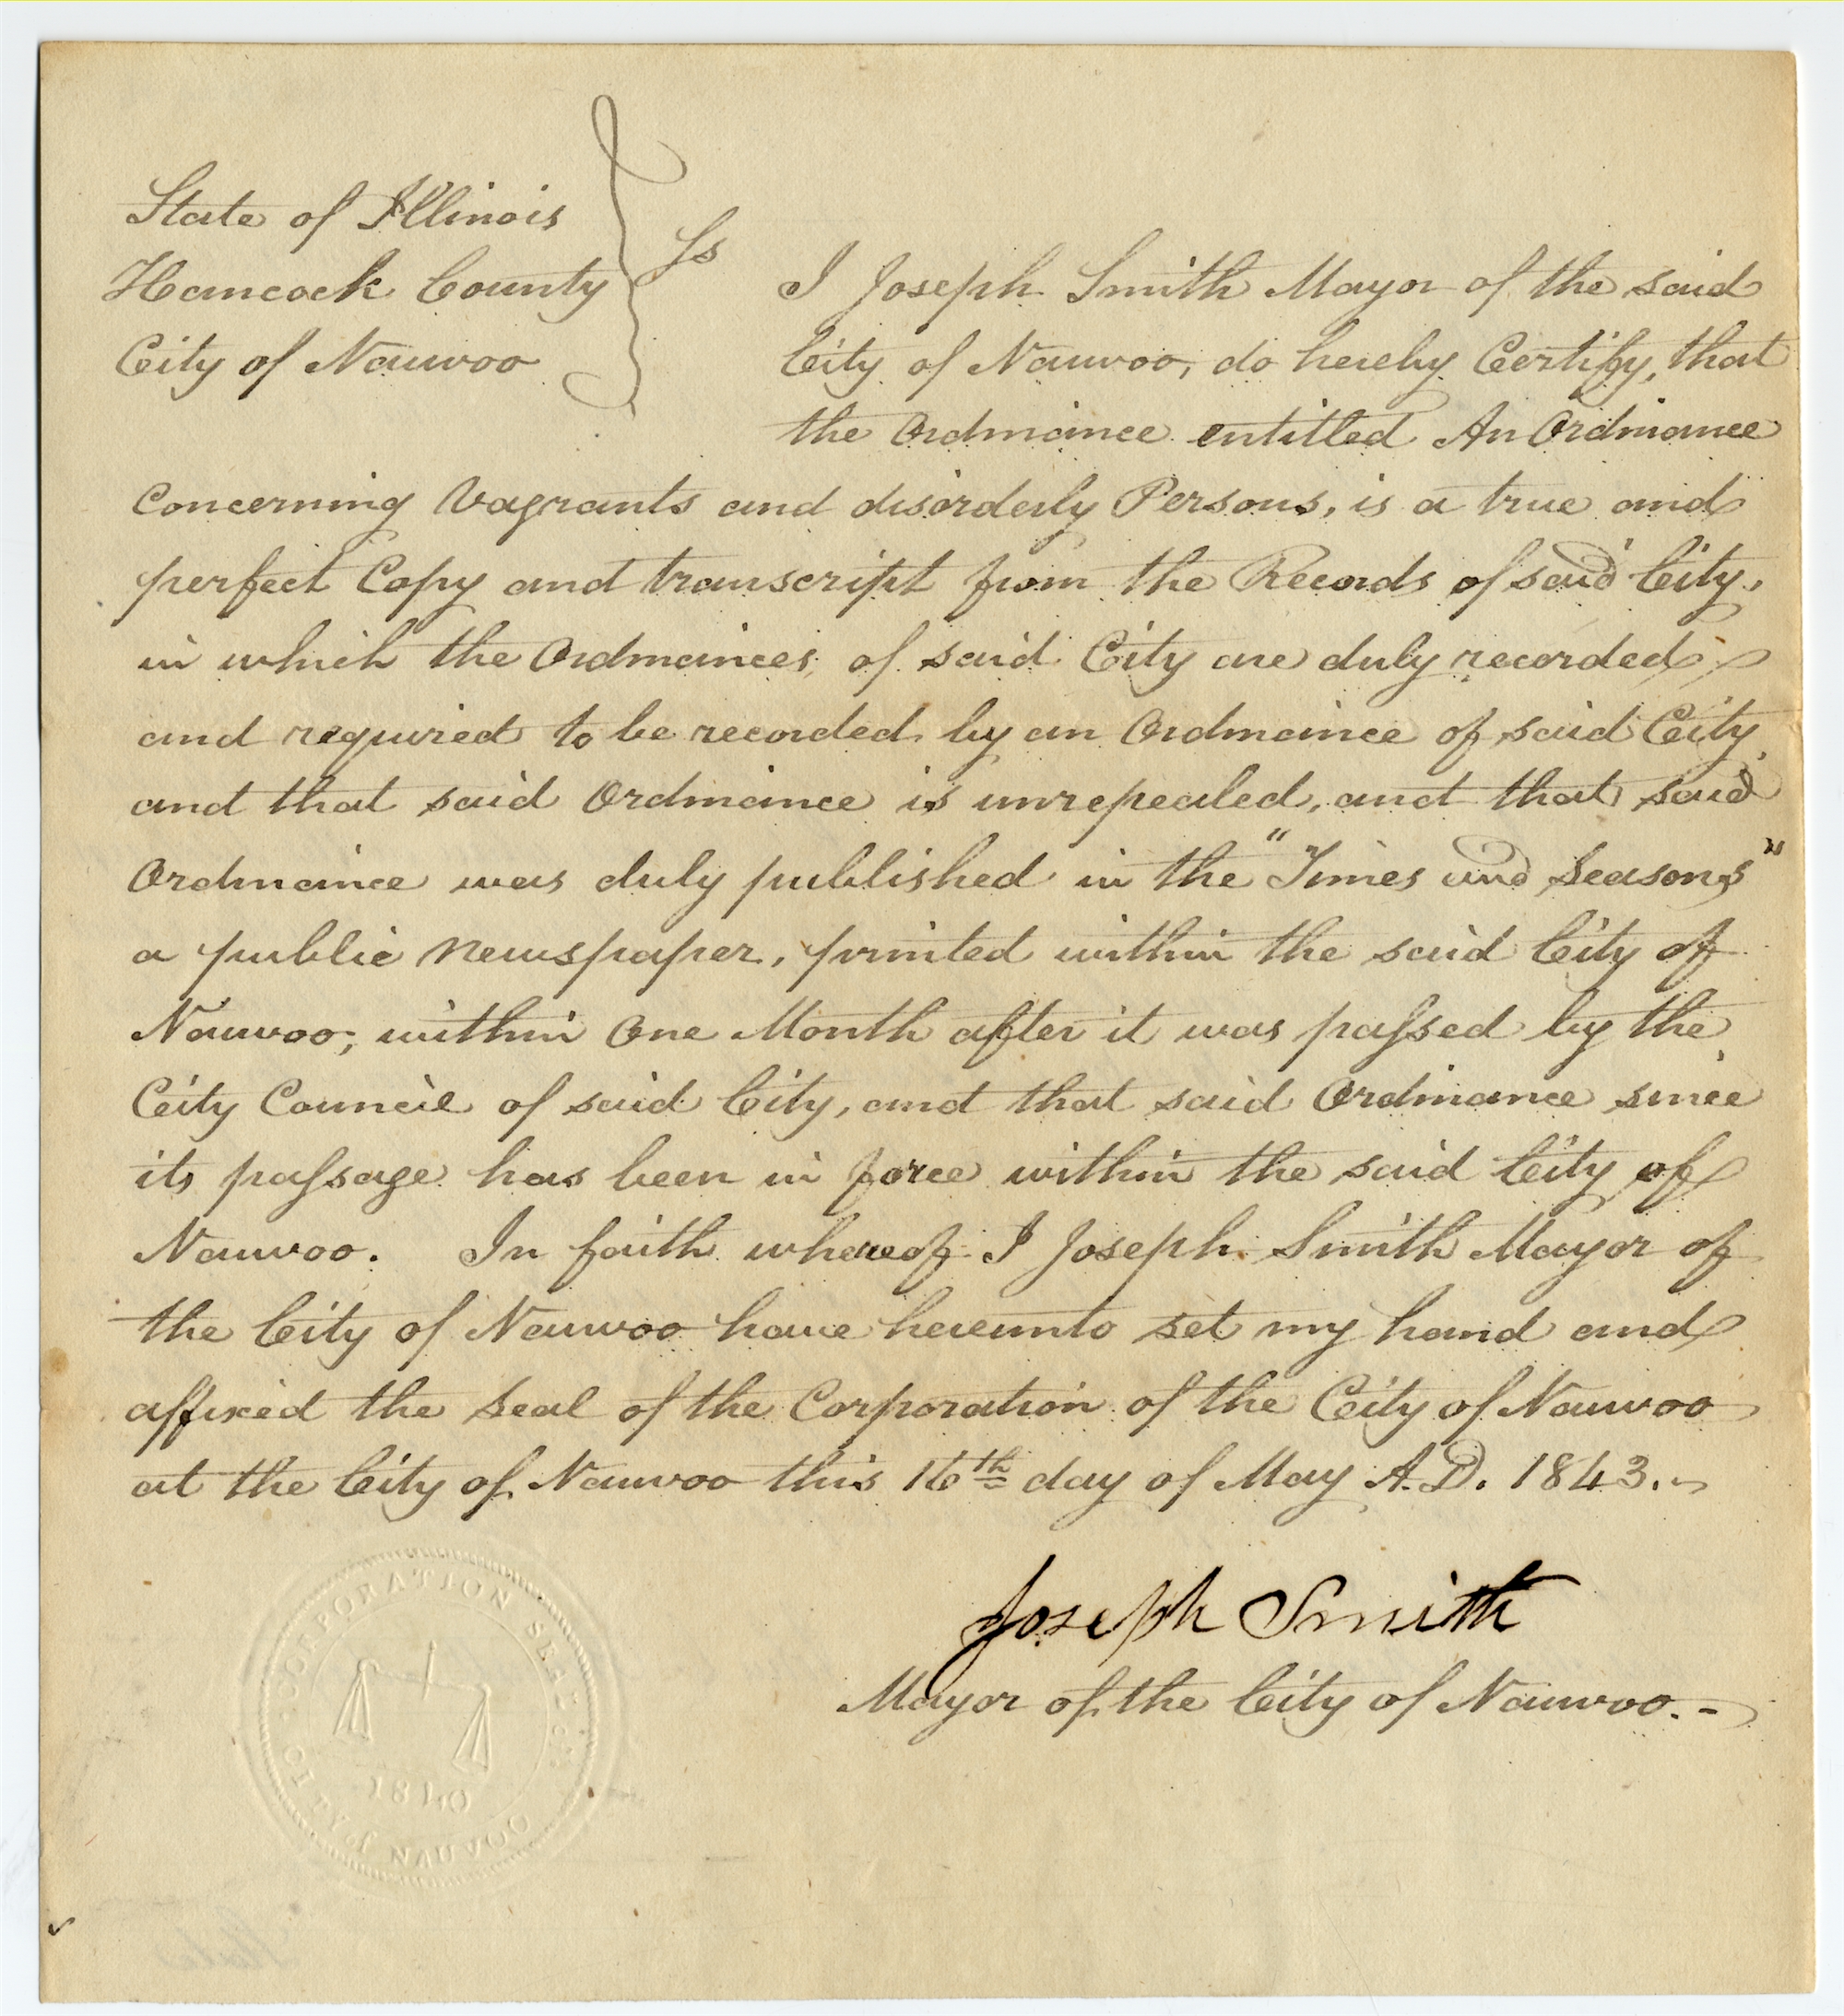 State of Illinois
Hancock County
City of Nauvoo
Ss
I Joseph Smith Mayor of the said
City of Nauvoo, do hereby Certify, that
the Ordinance entitled An Ordinance
Concerning Vagrants and disorderly Persons, is a true and
perfect Copy and transcript from the Records of said City,
in which the Ordinances of said City are duly recorded
and required to be recorded by an Ordinance of said City,
and that said Ordinance is unrepealed, and that said
Ordinance was duly published in the "Times and Seasons"
a public Newspaper, printed within the said City of
Nauvoo; within One Month after it was passed by the
City Council of said City, and that said Ordinance since
its passage has been in force within the said City of
Nauvoo. In faith whereof I Joseph Smith Mayor of
the City of Nauvoo have hereunto set my hand and
affixed the Seal of the Corporation of the City of Nauvoo
at the City of Nauvoo this 16th day of May A.D. 1843.
Joseph Smith
Mayor of the City of Nauvoo.-
CORPORATION SEAL OF
CITY OF NAUVOO
1840